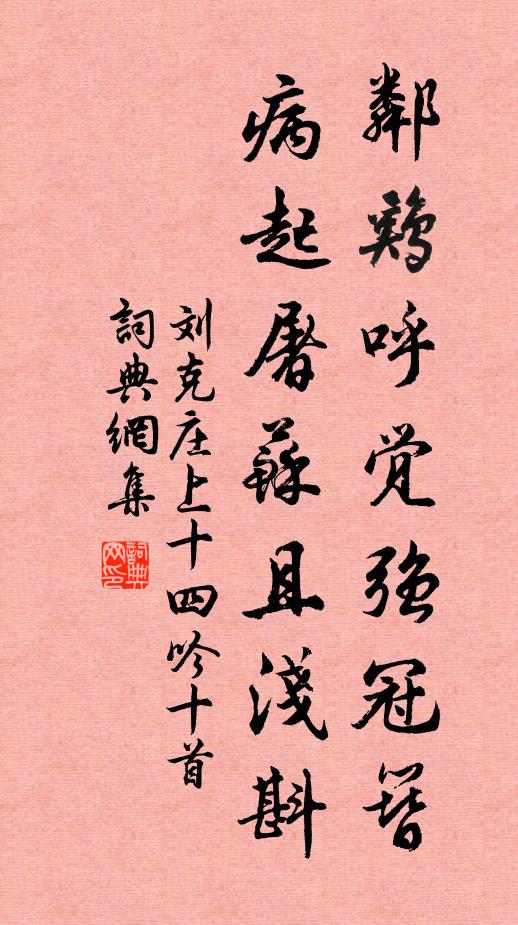 鄰鷄呼觉強冠簪
病起屠蘇且淺斟
刘克庄上十四吟十首
詞典網集
詞典
网印